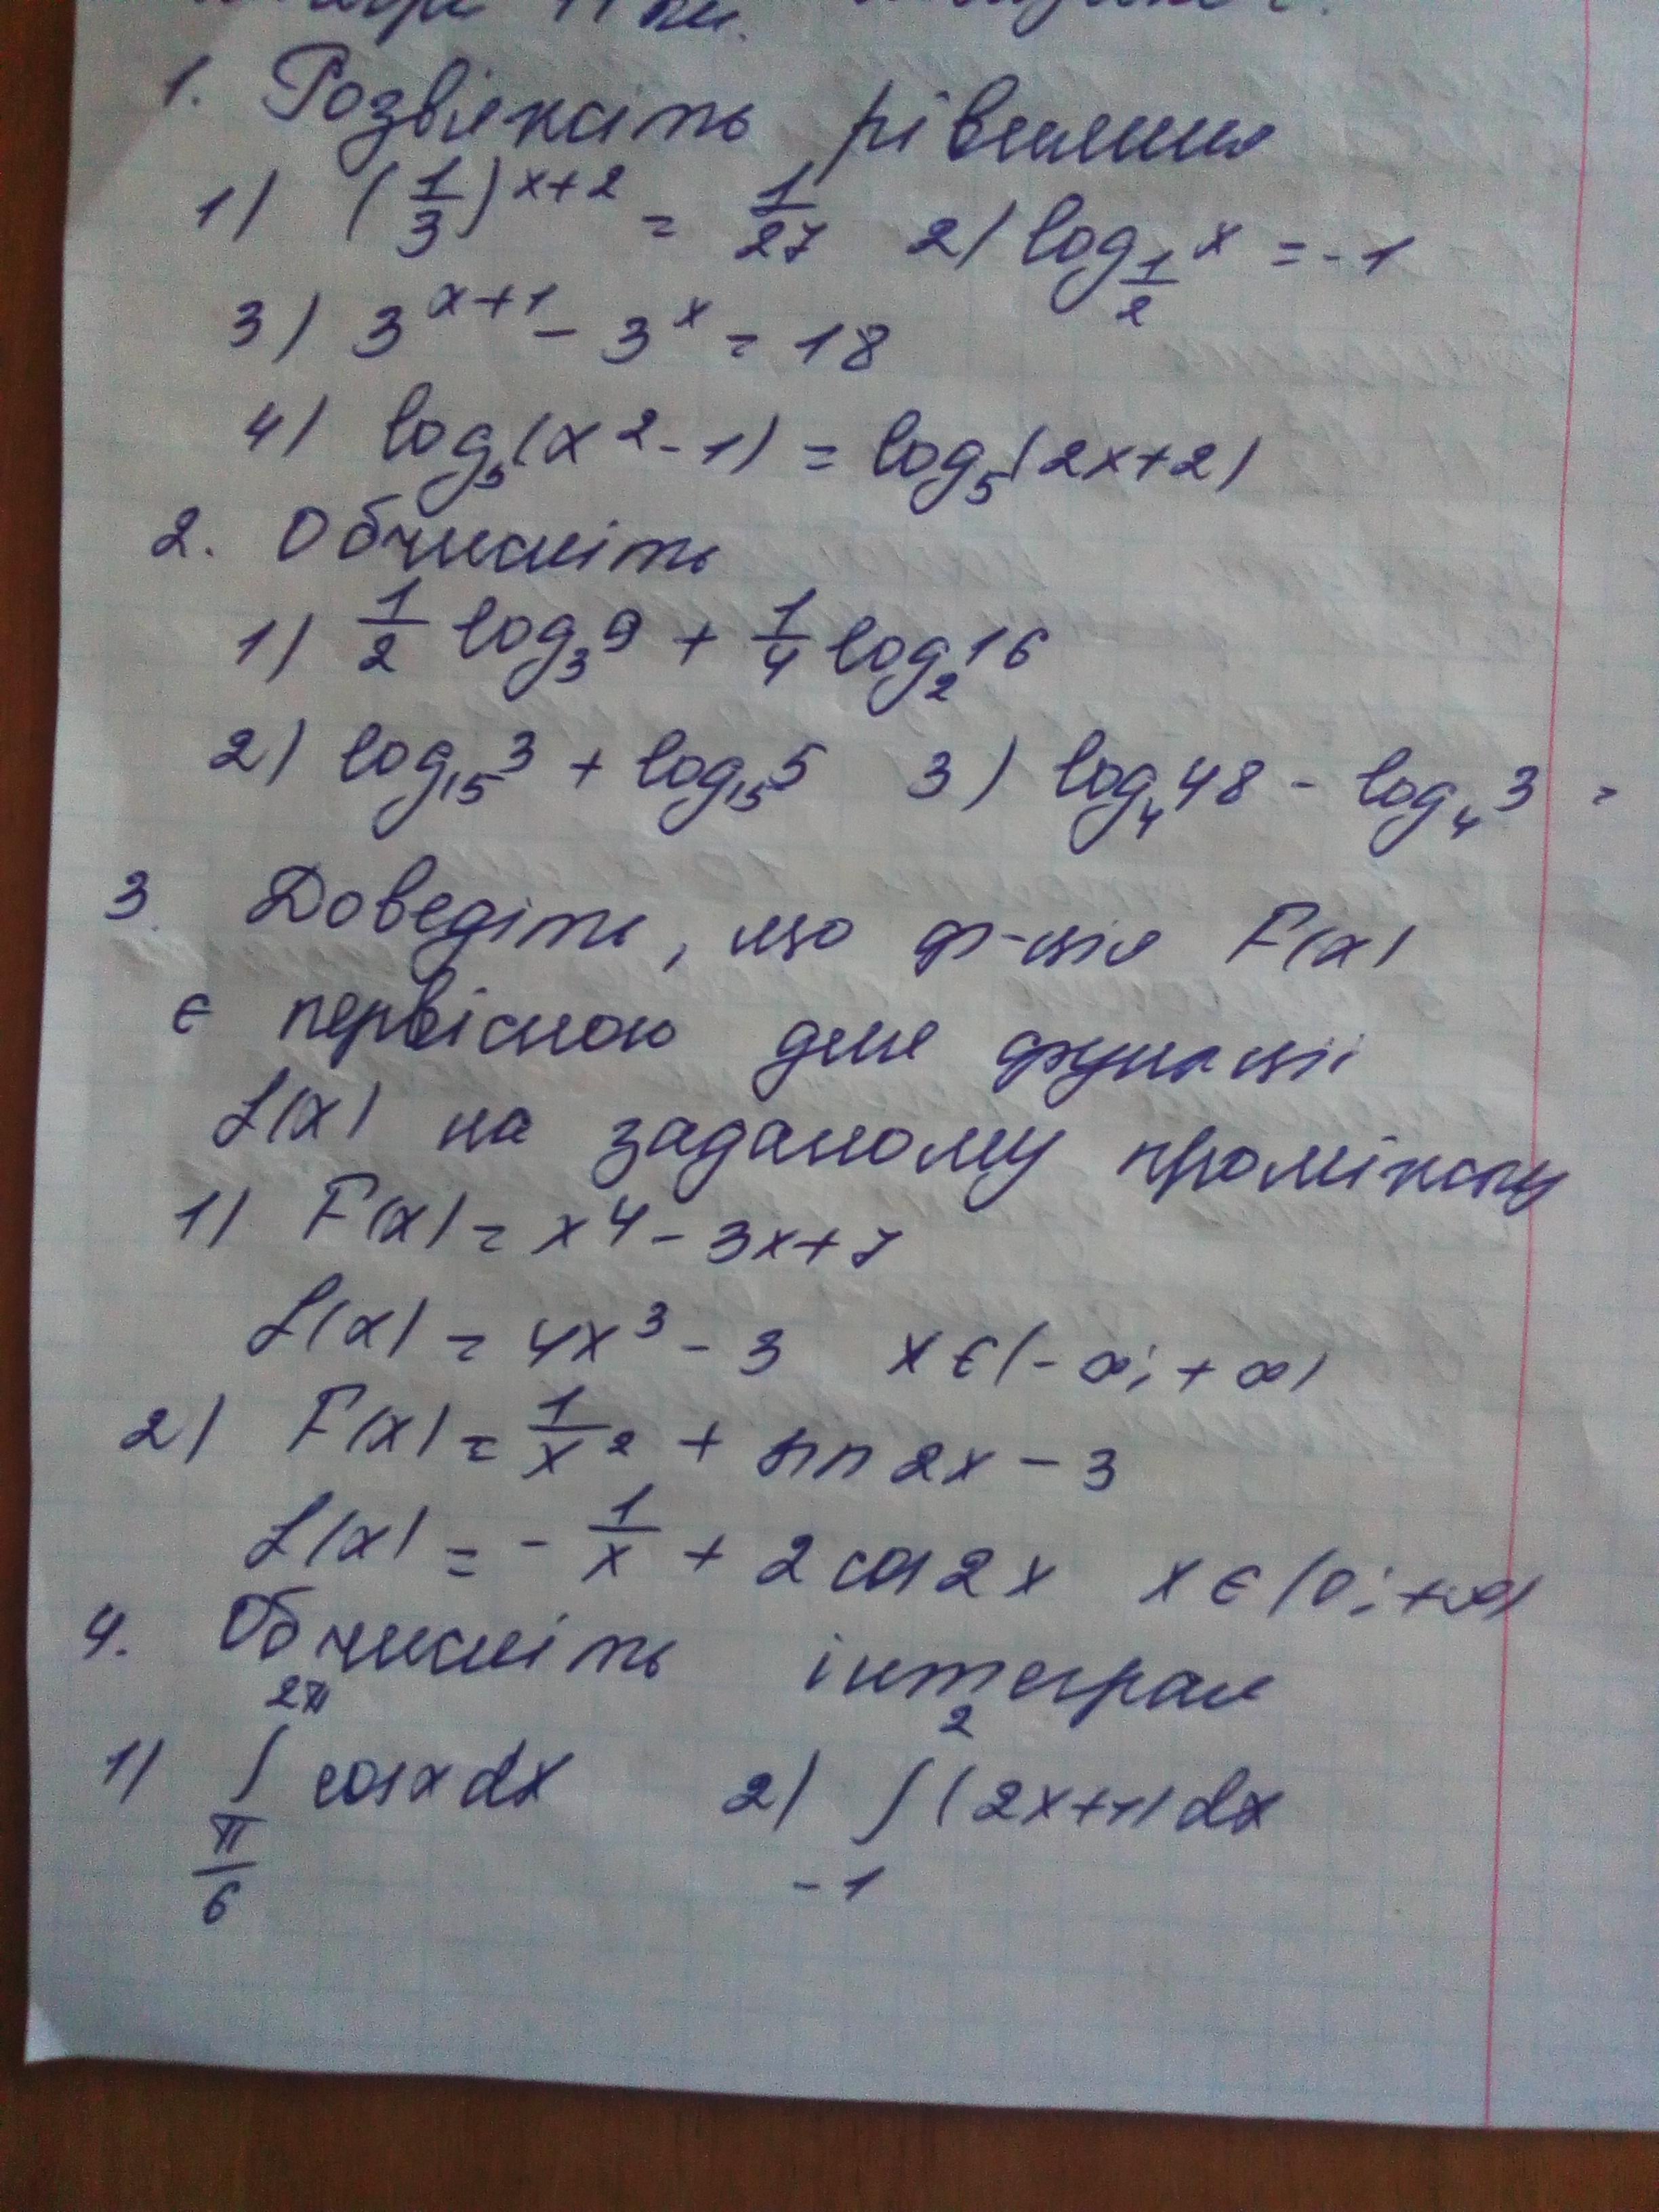 11 кл.
1. Розв'яжіть рівняння
1) (1/3)^(x+2) = 1/27 2) log_(1/2) x = -1
3) 3^(x+1) - 3^x = 18
4) log_5 (x^2 - 1) = log_5 (2x+2)
2. Обчисліть
1) 1/2 log_3 9 + 1/4 log_2 16
2) log_15 3 + log_15 5 3) log_4 48 - log_4 3 =
3. Доведіть, що ф-ція F(x)
є первісною для функції
f(x) на заданому проміжку
1) F(x) = x^4 - 3x + 7
f(x) = 4x^3 - 3 x ∈ (-∞; +∞)
2) F(x) = 1/x^2 + sin 2x - 3
f(x) = - 1/x + 2 cos 2x x ∈ (0; +∞)
4. Обчисліть інтеграл
1) ∫_(π/6)^(2π) cos x dx 2) ∫_(-1)^2 (2x+1) dx